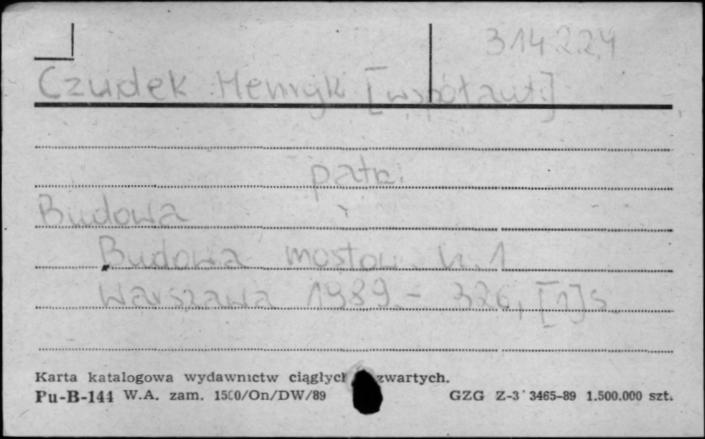 314224
Czudek Henryk [współaut.]
patrz:
Budowa
Budowa mostów. Cz. 1
Warszawa 1989.- 326, [1] s.
Karta katalogowa wydawnictw ciągłych zwartych.
Pu-B-144 W.A. zam. 1500/On/DW/89 GZG Z-3 3465-89 1.500.000 szt.